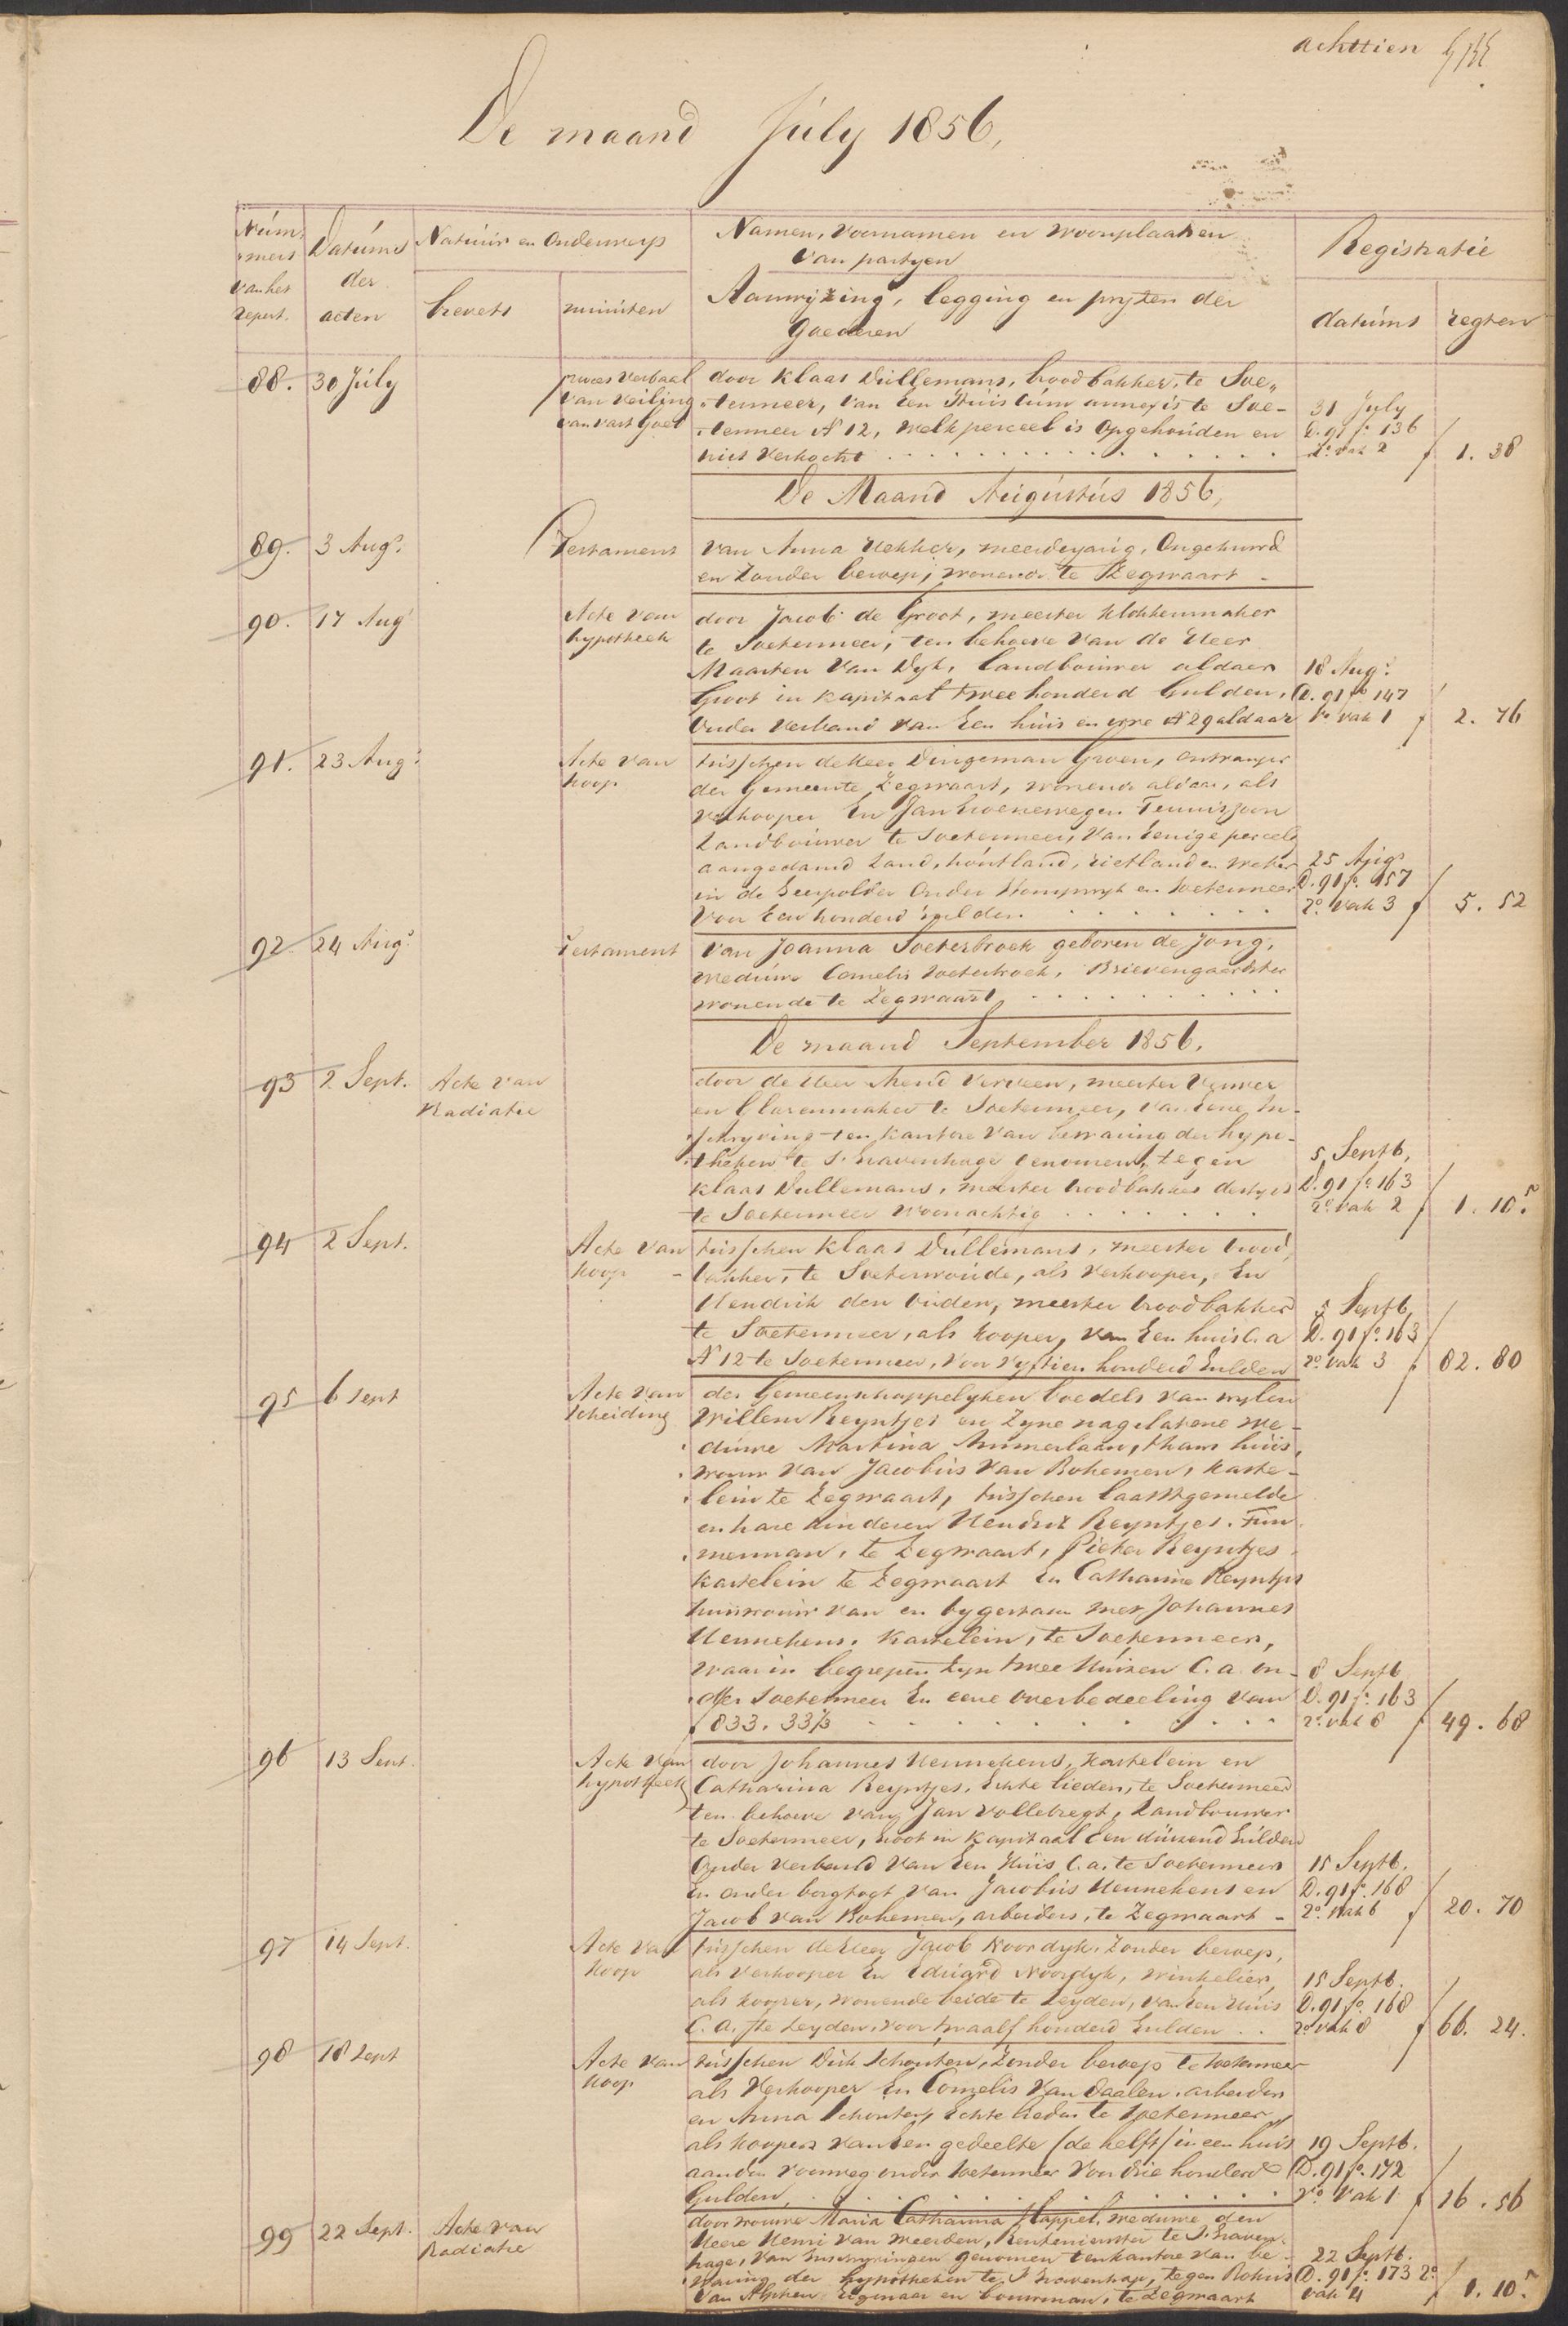 achttien
De maand July 1856,
Num-
mers
van het
repert.
Datums
der
acten
Natuur en Onderwerp
brevets
minuten
Namen, voornamen en woonplaatsen
van partyen
Aanwyzing, legging en pryzen der
Goederen
Registratie
datums
regten
88. 30 July
proces verbaal
van veiling
van vast goed
door Klaas Dullemans, broodbakker, te Soe-
termeer, van een Huis cum annexis te Soe-
termeer No 12, welk perceel is opgehouden en
niet verkocht
31 July
D. 91 fo. 136
ro. vak 2
f 1. 38
De Maand Augustus 1856,
89. 3 Augs.
Testament
van Anna Hekker, meerderjarig, Ongehuwd
en zonder beroep, wonende te Zegwaart
90. 17 Aug
Acte van
hypotheek
door Jacob de Groot, meester klokkenmaker
te Soetermeer, ten behoeve van de Heer
Maarten van Dyk, landbouwer aldaar
Groot in kapitaal twee honderd Gulden,
Onder verband van Een huis en erve No 29 aldaar
18 Augs.
D. 91 fo 147
vo vak 1
f 2. 76
91. 23 Augs
Acte van
koop
tusschen de Heer Dingeman Groen, ontvanger
der Gemeente Zegwaart, wonende aldaar, als
verkooper En Jan Groenewegen Teuniszoon
Landbouwer te Soetermeer, van Eenige perceelen
aangedamd land, houtland, rietland en water
in de Geerpolder Onder Stompwyk en Soetermeer
voor Een honderd gulden
25 Augs
D. 91 fo. 157
ro. vak 3
f 5. 52
92 24 Augs
Testament
van Joanna Soeterbroek geboren de Jong,
weduwe Cornelis Soeterbroek, Brievengaarster
wonende te Zegwaart
De maand September 1856.
93 2 Sept.
Acte van
Radiatie
door de Heer Arend Verveen, meester Verwer
en Glazenmaker te Soetermeer, van Eene In-
schryving ten kantore van bewaring der hypo-
theken te s' Gravenhage genomen, tegen
Klaas Dullemans, meester broodbakker destyds
te Soetermeer woonachtig
5 Septb,
D. 91 fo. 163
ro. vak 2
f 1. 10.5
94 2 Sept.
Acte van
koop
tusschen Klaas Dullemans, meester brood-
bakker, te Soeterwoude, als verkooper, En
Hendrik den Ouden, meester broodbakker
te Soetermeer, als kooper, van Een huis C.a
No 12 te Soetermeer, voor vyftien honderd Gulden
5 Septb,
D. 91 fo. 163
ro. vak 3
f 82. 80
95 6 Sept
Acte van
scheiding
der Gemeenschappelyken boedels van wylen
Willem Reyntjes en zyne nagelatene we-
duwe Martina Ammerlaan, thans huis-
vrouw van Jacobus van Bohemen, kaste-
lein te Zegwaart, tusschen laatstgemelde
en hare kinderen Hendrik Reyntjes, Tim-
merman, te Zegwaart, Pieter Reyntjes,
kastelein te Zegwaart En Catharina Reyntjes
huisvrouw van en bygestaan met Johannes
Hennekens, kastelein, te Soetermeer,
waarin begrepen zyn twee Huizen C.a. on-
der Soetermeer En eene overbedeeling van
f 833. 33⅓
8 Septb
D. 91 fo. 163
ro. vak 8
f 49. 68
96 13 Sept.
Acte van
hypotheek
door Johannes Hennekens, kastelein en
Catharina Reyntjes, Echte lieden, te Soetermeer
ten behoeve van Jan Vollebregt, Landbouwer
te Soetermeer, groot in kapitaal Een duizend Gulden
Onder verband van Een Huis C.a. te Soetermeer
En onder borgtogt van Jacobus Hennekens en
Jacob van Bohemen, arbeiders, te Zegwaart
15 Septb.
D. 91 fo. 168
ro. vak 6
f 20. 70
97 14 Sept.
Acte van
koop
tusschen de Heer Jacob Noordyk, zonder beroep,
als verkooper En Eduard Noordyk, winkelier,
als kooper, wonende beide te Leyden, van Een Huis
C.a. te Leyden, voor twaalf honderd Gulden
15 Septb.
D. 91 fo. 168
ro vak 8
f 66. 24.
98 18 Sept
Acte van
koop
tusschen Dirk Schouten, zonder beroep te Soetermeer
als verkooper En Cornelis van Daalen, arbeider
en Anna Schouten, Echte lieden te Soetermeer
als koopers van Een gedeelte (de helft) in een huis
aan den voorweg onder Soetermeer voor drie honderd
Gulden,
19 Septb.
D. 91 fo. 172
vo vak 1
f 16. 56
99 22 Sept.
Acte van
Radiatie
door vrouwe Maria Catharina Happel, weduwe den
Heere Henri van Meerden, Rentenierster te s' Graven-
hage, van Inschryvingen genomen ten kantore van be-
waring der hypotheken te s' Gravenhage, tegen
van Alphen Eigenaar en bouwman, te Zegwaart
22 Septb.
D. 91 fo. 173 ro
vak 4
f 1. 10.5